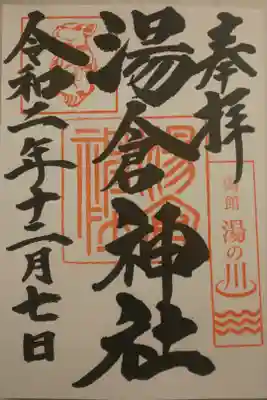 奉拝
函館 湯の川
湯倉神社
湯倉神社
令和二年十二月七日